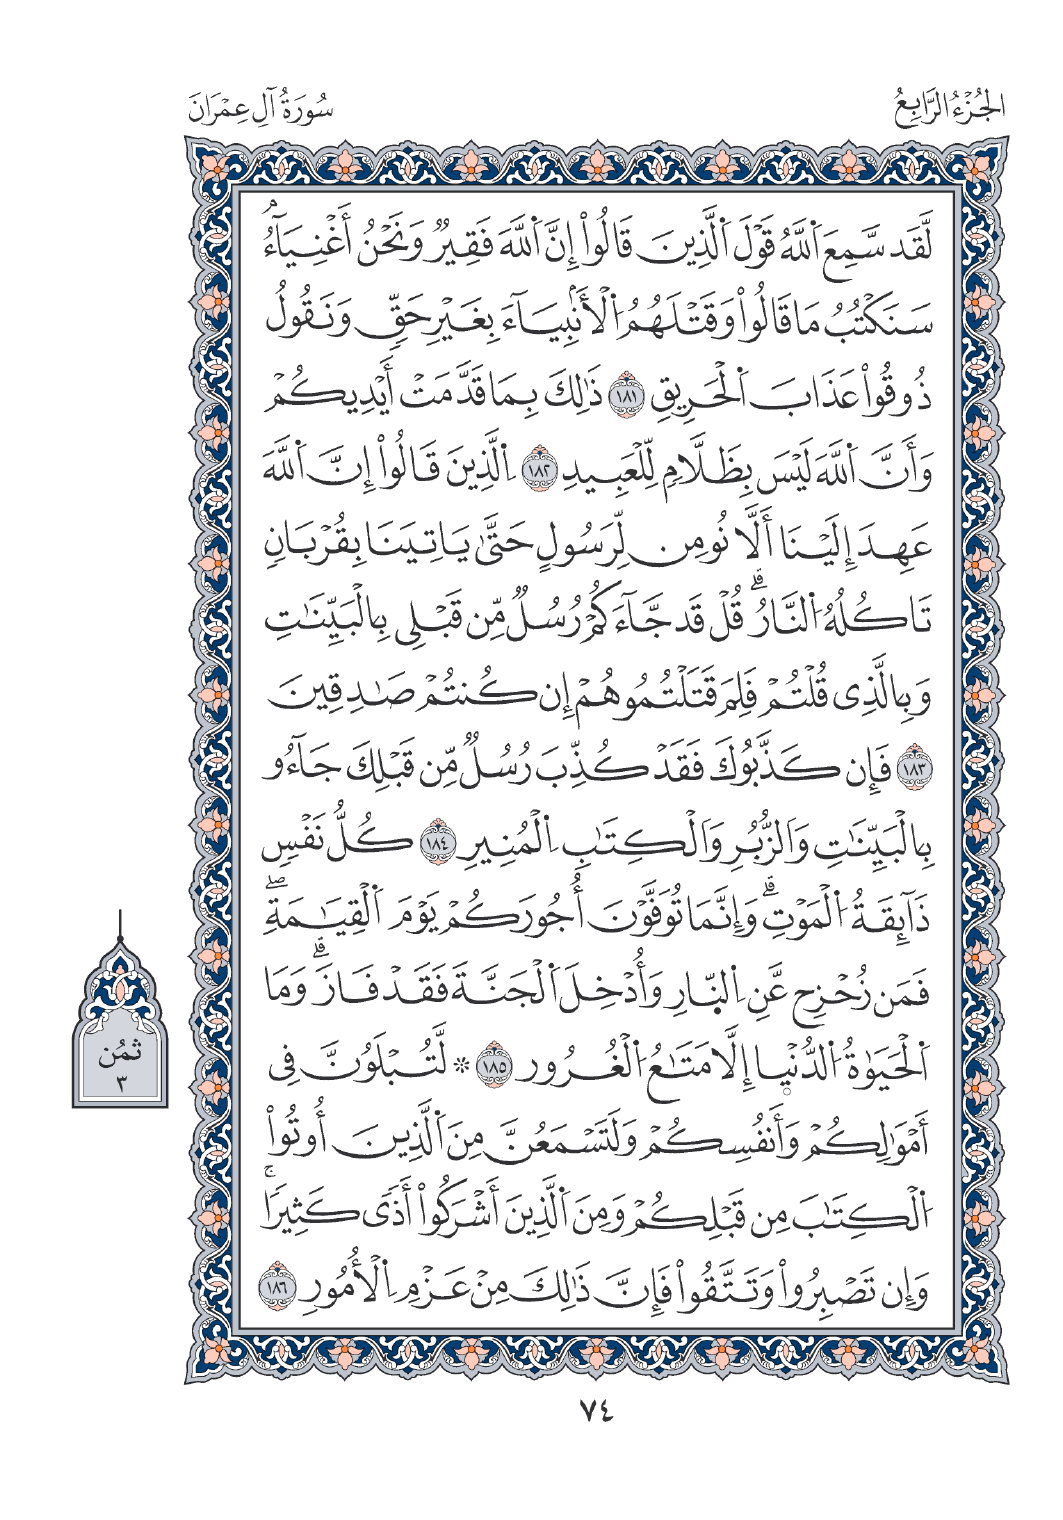 الجُزْءُ الرَّابِعُ
سُورَةُ آلِ عِمْرَانَ
لَّقَد سَّمِعَ اَ۬للَّهُ قَوْلَ اَ۬لَّذِينَ قَالُواْ إِنَّ اَ۬للَّهَ فَقِيرٌ وَنَحْنُ أَغْنِيَآءُۘ
سَنَكْتُبُ مَا قَالُواْ وَقَتْلَهُمُ اُ۬لْأَنۢبِيَآءَ بِغَيْرِ حَقٍّ وَنَقُولُ
ذُوقُواْ عَذَابَ اَ۬لْحَرِيقِ ١٨١ ذَٰلِكَ بِمَا قَدَّمَتْ أَيْدِيكُمْ
وَأَنَّ اَ۬للَّهَ لَيْسَ بِظَلَّامٍ لِّلْعَبِيدِ ١٨٢ اِ۬لَّذِينَ قَالُواْ إِنَّ اَ۬للَّهَ
عَهِدَ إِلَيْنَا أَلَّا نُومِن لِّرَسُولٍ حَتَّىٰ يَاتِيَنَا بِقُرْبَانٍ
تَاكُلُهُ اُ۬لنَّارُۗ قُلْ قَد جَّآءَكُمْ رُسُلٌ مِّن قَبْلِى بِالْبَيِّنَٰتِ
وَبِالَّذِى قُلْتُمْ فَلِمَ قَتَلْتُمُوهُمْ إِن كُنتُمْ صَٰدِقِينَ
١٨٣ فَإِن كَذَّبُوكَ فَقَدْ كُذِّبَ رُسُلٌ مِّن قَبْلِكَ جَآءُو
بِالْبَيِّنَٰتِ وَالزُّبُرِ وَالْكِتَٰبِ اِ۬لْمُنِيرِ ١٨٤ كُلُّ نَفْسٍ
ذَآئِقَةُ اُ۬لْمَوْتِۗ وَإِنَّمَا تُوَفَّوْنَ أُجُورَكُمْ يَوْمَ اَ۬لْقِيَٰمَةِۖ
فَمَن زُحْزِح عَّنِ اِ۬لنّ۪ارِ وَأُدْخِلَ اَ۬لْجَنَّةَ فَقَدْ فَازَۗ وَمَا
اَ۬لْحَيَوٰةُ اُ۬لدُّنْي۪ا إِلَّا مَتَٰعُ اُ۬لْغُرُورِ ١٨٥ * لَتُبْلَوُنَّ فِى
أَمْوَٰلِكُمْ وَأَنفُسِكُمْ وَلَتَسْمَعُنَّ مِنَ اَ۬لَّذِينَ أُوتُواْ
اُ۬لْكِتَٰبَ مِن قَبْلِكُمْ وَمِنَ اَ۬لَّذِينَ أَشْرَكُواْ أَذًى كَثِيرًاۚ
وَإِن تَصْبِرُواْ وَتَتَّقُواْ فَإِنَّ ذَٰلِكَ مِنْ عَزْمِ اِ۬لْأُمُورِ ١٨٦
ثُمُن
٣
٧٤